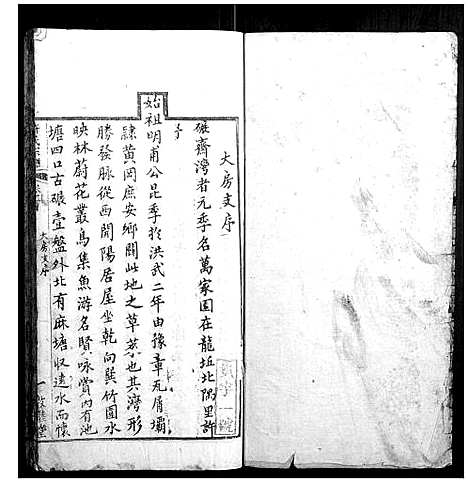 大房支序
碾齊灣者元季名萬家園在龍坵北隅里許
予
始祖明甫公昆季於洪武二年由豫章瓦屑壩
隸黃岡庶安鄉闢此地之草萊也其灣形
勝發脈從西開陽居屋坐乾向巽竹園水
映林蔚花叢鳥集魚游名賢咏賞內有池
塘四口古碾壹盤外北有麻塘收遠水而懷
大房支序
一